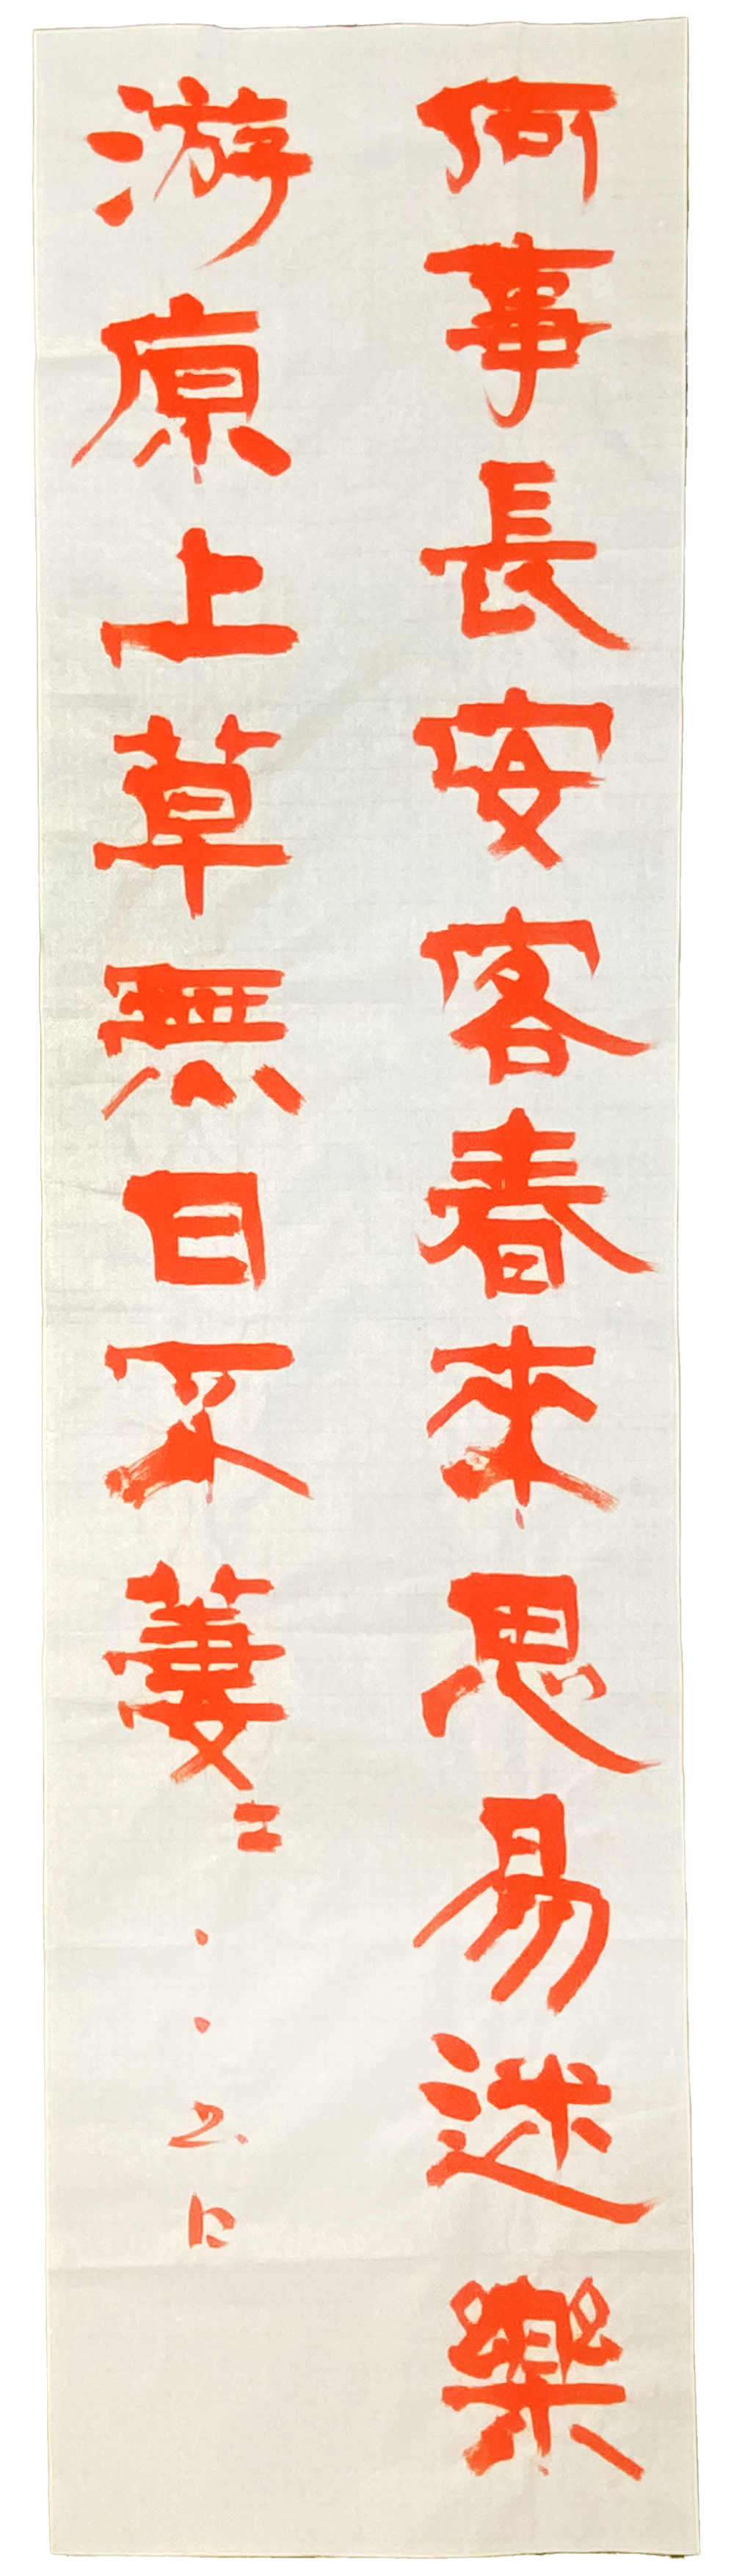 何事長安客春來思易迷樂
游原上草無日不萋〻